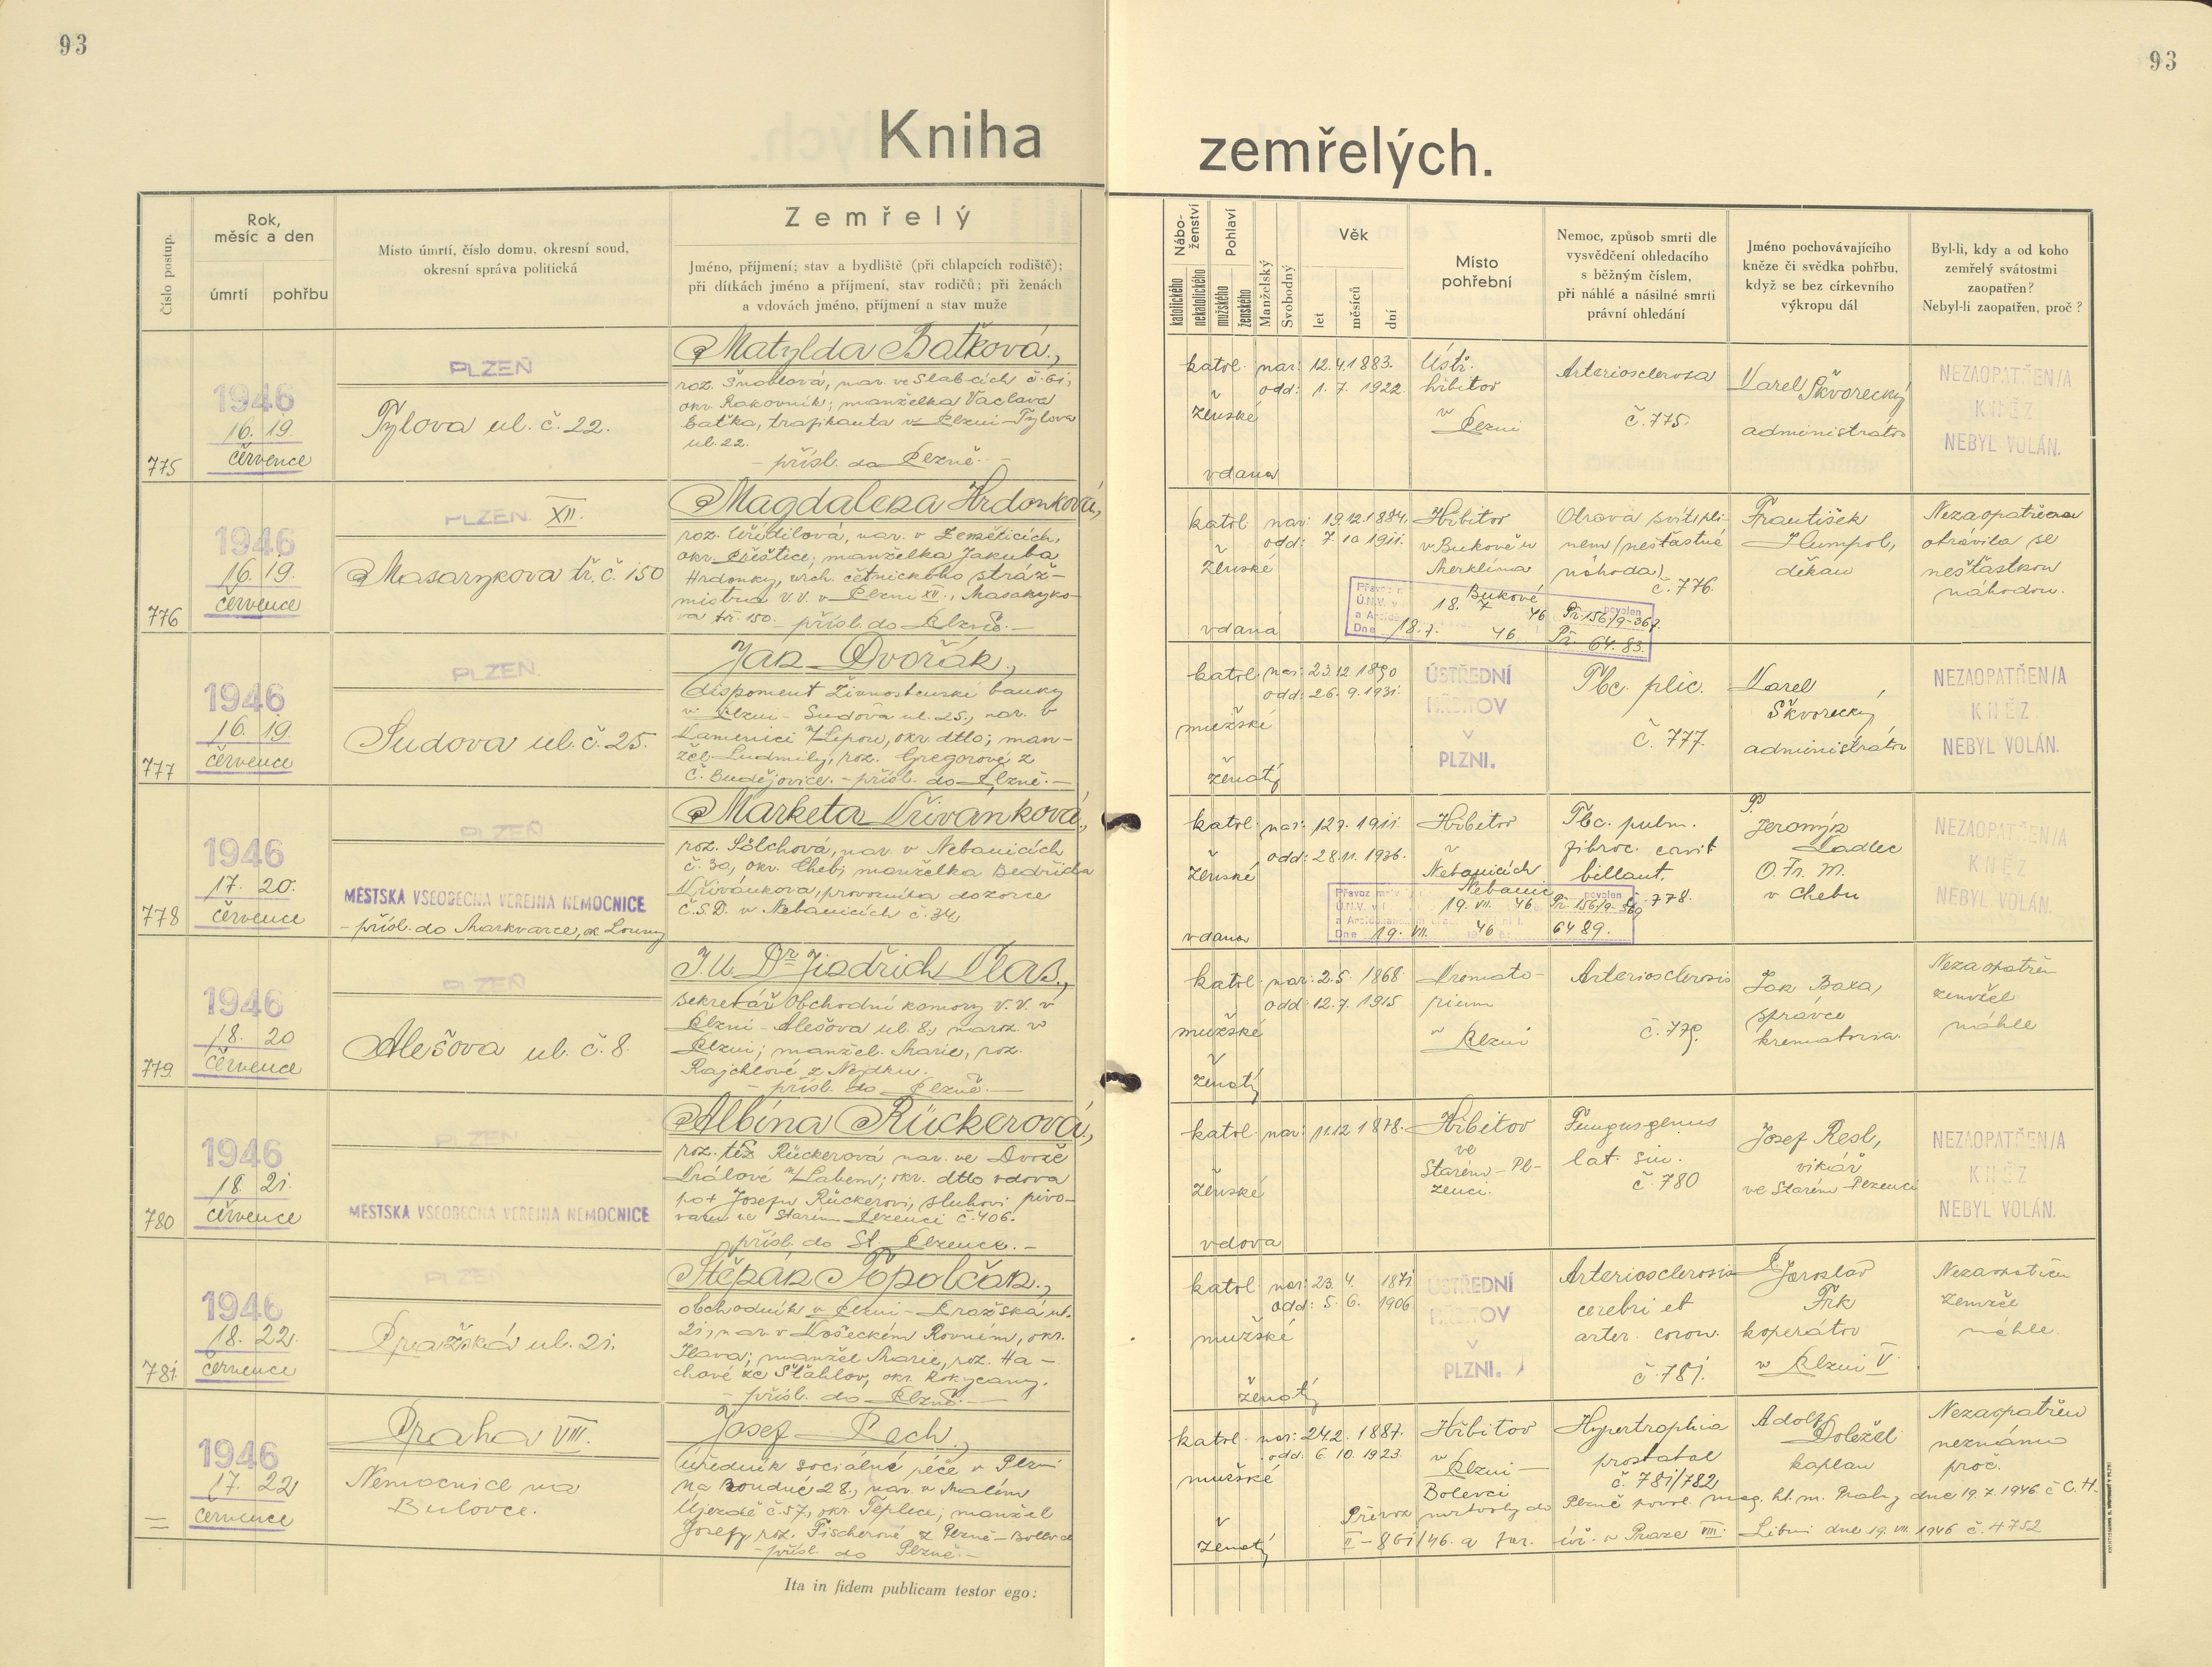 93
93
Kniha zemřelých.
Číslo postup.
Rok,
měsíc a den
úmrtí
pohřbu
Místo úmrtí, číslo domu, okresní soud,
okresní správa politická
Zemřelý
Jméno, příjmení; stav a bydliště (při chlapcích rodiště);
při dítkách jméno a příjmení, stav rodičů; při ženách
a vdovách jméno, příjmení a stav muže
Nábo-
ženství
katolického
nekatolického
Pohlaví
mužského
ženského
Manželský
Svobodný
Věk
let
měsíců
dní
Místo
pohřební
Nemoc, způsob smrti dle
vysvědčení ohledacího
s běžným číslem,
při náhlé a násilné smrti
právní ohledání
Jméno pochovávajícího
kněze či svědka pohřbu,
když se bez církevního
výkropu dál
Byl-li, kdy a od koho
zemřelý svátostmi
zaopatřen?
Nebyl-li zaopatřen, proč?
775
1946
16. 19
července
PLZEŇ
Tylova ul. č. 22.
Matylda Baťková,
roz. Šnoblová, nar. ve Slabcích č. 61,
okr. Rakovník; manželka Václava
Baťka, trafikanta v Plzni-Tylova
ul. 22.
- přísl. do Plzně. -
katol.
ženské
vdana
nar: 12.4.1883.
odd: 1. 7. 1922.
Ústř.
hřbitov
v
Plzni
Arteriosclerosa
č. 775.
Karel Škvorecký
administrátor
NEZAOPATŘEN/A
KNĚZ
NEBYL VOLÁN.
776
1946
16. 19.
července
PLZEŇ XII.
Masarykova tř. č. 150
Magdalena Hrdonková,
roz. Úředilová, nar. v Zeměticích,
okr. Přeštice; manželka Jakuba
Hrdonky, vrch. četnického stráž-
mistra v.v. v Plzni XII., Masaryko-
va tř. 150. - přísl. do Plzně. -
katol.
ženské
vdana
nar: 19.12.1884.
odd: 7. 10 1911.
Hřbitov
v Bukové u
Merklína
Otrava svítipli-
nem (nešťastná
náhoda)
č. 776.
Bukové
18. 7 46
povolen
Př. 156/9-367.
Dne 18.7. 46
Př 64.83.
František
Humpol,
děkan
Nezaopatřena
otrávila se
nešťastnou
náhodou.
777
1946
16. 19.
července
PLZEŇ.
Sudova ul. č. 25.
Jan Dvořák,
disponent Živnostenské banky
v Plzni - Sudova ul. 25., nar. v
Kamenici n/Lipou, okr. dtto; man-
žel Ludmily, roz. Gregorové z
Č. Budějovice. - přísl. do Plzně. -
katol.
mužské
ženatý
nar: 23.12 1890
odd: 26. 9. 1931.
ÚSTŘEDNÍ
HŘBITOV
V
PLZNI.
Tbc. plic.
č. 777.
Karel
Škvorecký
administrátor
NEZAOPATŘEN/A
KNĚZ
NEBYL VOLÁN.
778
1946
17. 20.
července
PLZEŇ
MĚSTSKÁ VŠEOBECNÁ VEŘEJNÁ NEMOCNICE
- přísl. do Markvarce, ok. Louny
Marketa Křivánková,
roz. Sölchová, nar. v Nebanicích
č. 30, okr. Cheb; manželka Bedřicha
Křivánkova, provozního dozorce
Č.S.D. v Nebanicích č. 34.
katol.
ženské
vdana
nar: 12.7. 1911.
odd: 28.11. 1936.
Hřbitov
v
Nebanicích
Tbc. pulm.
fibroc. cavit
billaut.
č. 778.
Převoz
Nebanic
19. VII. 46
povolen
Př. 156/9-369
Dne 19. VII. 46
6489.
P.
Jeroným
Kadlec
O. Fr. M.
v Chebu
NEZAOPATŘEN/A
KNĚZ
NEBYL VOLÁN.
779
1946
18. 20
července
PLZEŇ
Alešova ul. č. 8.
J.U. Dr. Jindřich Vlas,
sekretář Obchodní komory v.v. v
Plzni - Alešova ul. 8., naroz. v
Plzni; manžel. Marie, roz.
Rajchlové z Nejdku.
- přísl. do Plzně. -
katol.
mužské
ženatý
nar: 2.5. 1868
odd: 12.7. 1915
Kremato-
rium
v Plzni
Arteriosclerosis
č. 779.
Jan Baxa,
správce
krematoria.
Nezaopatřen
zemřel
náhle
780
1946
18. 21.
července
PLZEŇ
MĚSTSKÁ VŠEOBECNÁ VEŘEJNÁ NEMOCNICE
Albína Rückerová,
roz. též Rückerová nar. ve Dvoře
Králové n/Labem; okr. dtto vdova
po + Josefu Rückerovi, sluhovi pivo-
varu ve Starém Plzenci č. 406.
přísl. do St. Plzence. -
katol.
ženské
vdova
nar: 11.12 1878.
Hřbitov
ve
Starém-Pl-
zenci.
Fungus genus
lat. sin.
č. 780
Josef Resl,
vikář
ve Starém Plzenci
NEZAOPATŘEN/A
KNĚZ
NEBYL VOLÁN.
781
1946
18. 22.
července
PLZEŇ
Pražská ul. 21.
Štěpán Topolčan,
obchodník v Plzni - Pražská ul.
21, nar. v Košeckém Rovném, okr.
Ilava; manžel Marie, roz. Ha-
chové ze Šťáhlav, okr. Rokycany.
- přísl. do Plzně. -
katol.
mužské
ženatý
nar: 23. 4. 1871
odd: 5. 6. 1906
ÚSTŘEDNÍ
HŘBITOV
V
PLZNI.
Arteriosclerosis
cerebri et
arter. coron.
č. 781.
P. Jaroslav
Frk
koperátor
v Plzni V.
Nezaopatřen
Zemřel
náhle.
=
1946
17. 22
července
Praha VIII.
Nemocnice na
Bulovce.
Josef Pech,
úředník sociálné péče v Plzni
Na Boudné 28., nar. v Malém
Újezdě č. 57, okr. Teplice; manžel
Josefy, roz. Fischerové z Plzně-Bolevce
- přísl. do Plzně. -
katol.
mužské
ženatý
nar: 24.2. 1887.
odd: 6. 10. 1923.
Hřbitov
v
Plzni -
Bolevci
Hypertrophia
prostatae
č. 781/782
Adolf
Doležel
kaplan
Nezaopatřen
neznámo
proč.
Převoz mrtvoly do Plzně povol. mag. hl. m. Prahy dne 19.7.1946. č C.H.
II - 861/46. a far. úř. v Praze VIII. Libni dne 19. VII. 1946 č. 4752
Ita in fidem publicam testor ego: